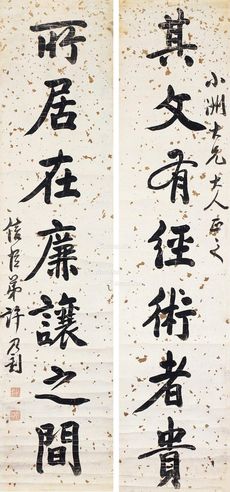 小洲大兄大人正之
其文有經術者貴
所居在廉讓之間
信臣弟許乃釗